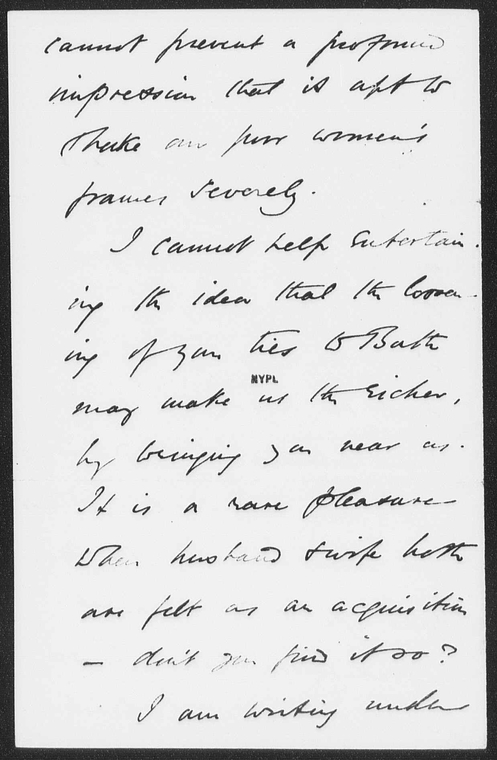 cannot prevent a profound
impression that is apt to
shake our poor women's
frames severely.
I cannot help entertain-
ing the idea that the loosen-
ing of your ties to Bath
NYPL
may make us the richer,
by bringing you near us.
It is a rare pleasure
when husband & wife both
are felt as an acquisition
— don't you find it so?
I am writing under